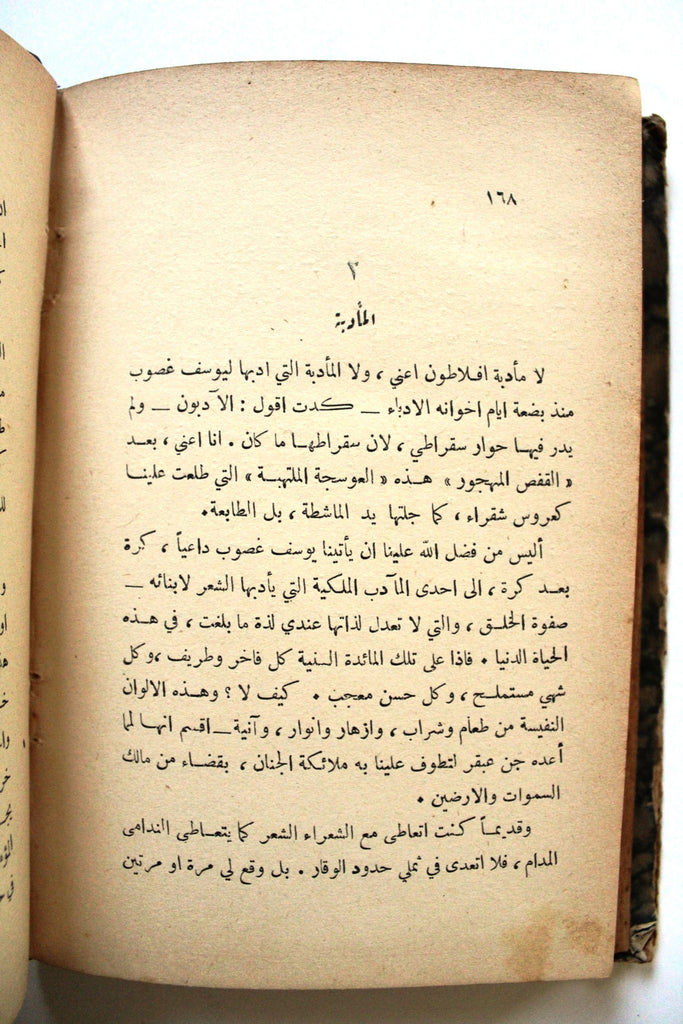 ١٦٨
٢
المأدبة
لا مأدبة افلاطون اعني ، ولا المأدبة التي ادبها ليوسف غصوب
منذ بضعة ايام اخوانه الادباء _ كدت اقول : الآدبون _ ولم
يدر فيها حوار سقراطي ، لان سقراطها ما كان . انا اعني ، بعد
« القفص المهجور » هذه « العوسجة الملتهبة » التي طلعت علينا
كعروس شقراء ، كما جلتها يد الماشطة ، بل الطابعة .
أليس من فضل الله علينا ان يأتينا يوسف غصوب داعياً ، كرة
بعد كرة ، الى احدى المآدب الملكية التي يأدبها الشعر لابنائه _
صفوة الخلق ، والتي لا تعدل لذاتها عندي لذة ما بلغت ، في هذه
الحياة الدنيا . فاذا على تلك المائدة السنية كل فاخر وطريف ، وكل
شهي مستملح ، وكل حسن معجب . كيف لا ؟ وهذه الالوان
النفيسة من طعام وشراب ، وازهار وانوار ، وآنية _ اقسم انها لما
أعده جن عبقر لتطوف علينا به ملائكة الجنان ، بقضاء من مالك
السموات والارضين .
وقديماً كنت اتعاطى مع الشعراء الشعر كما يتعاطى الندامى
المدام ، فلا اتعدى في ثملي حدود الوقار . بل وقع لي مرة او مرتين